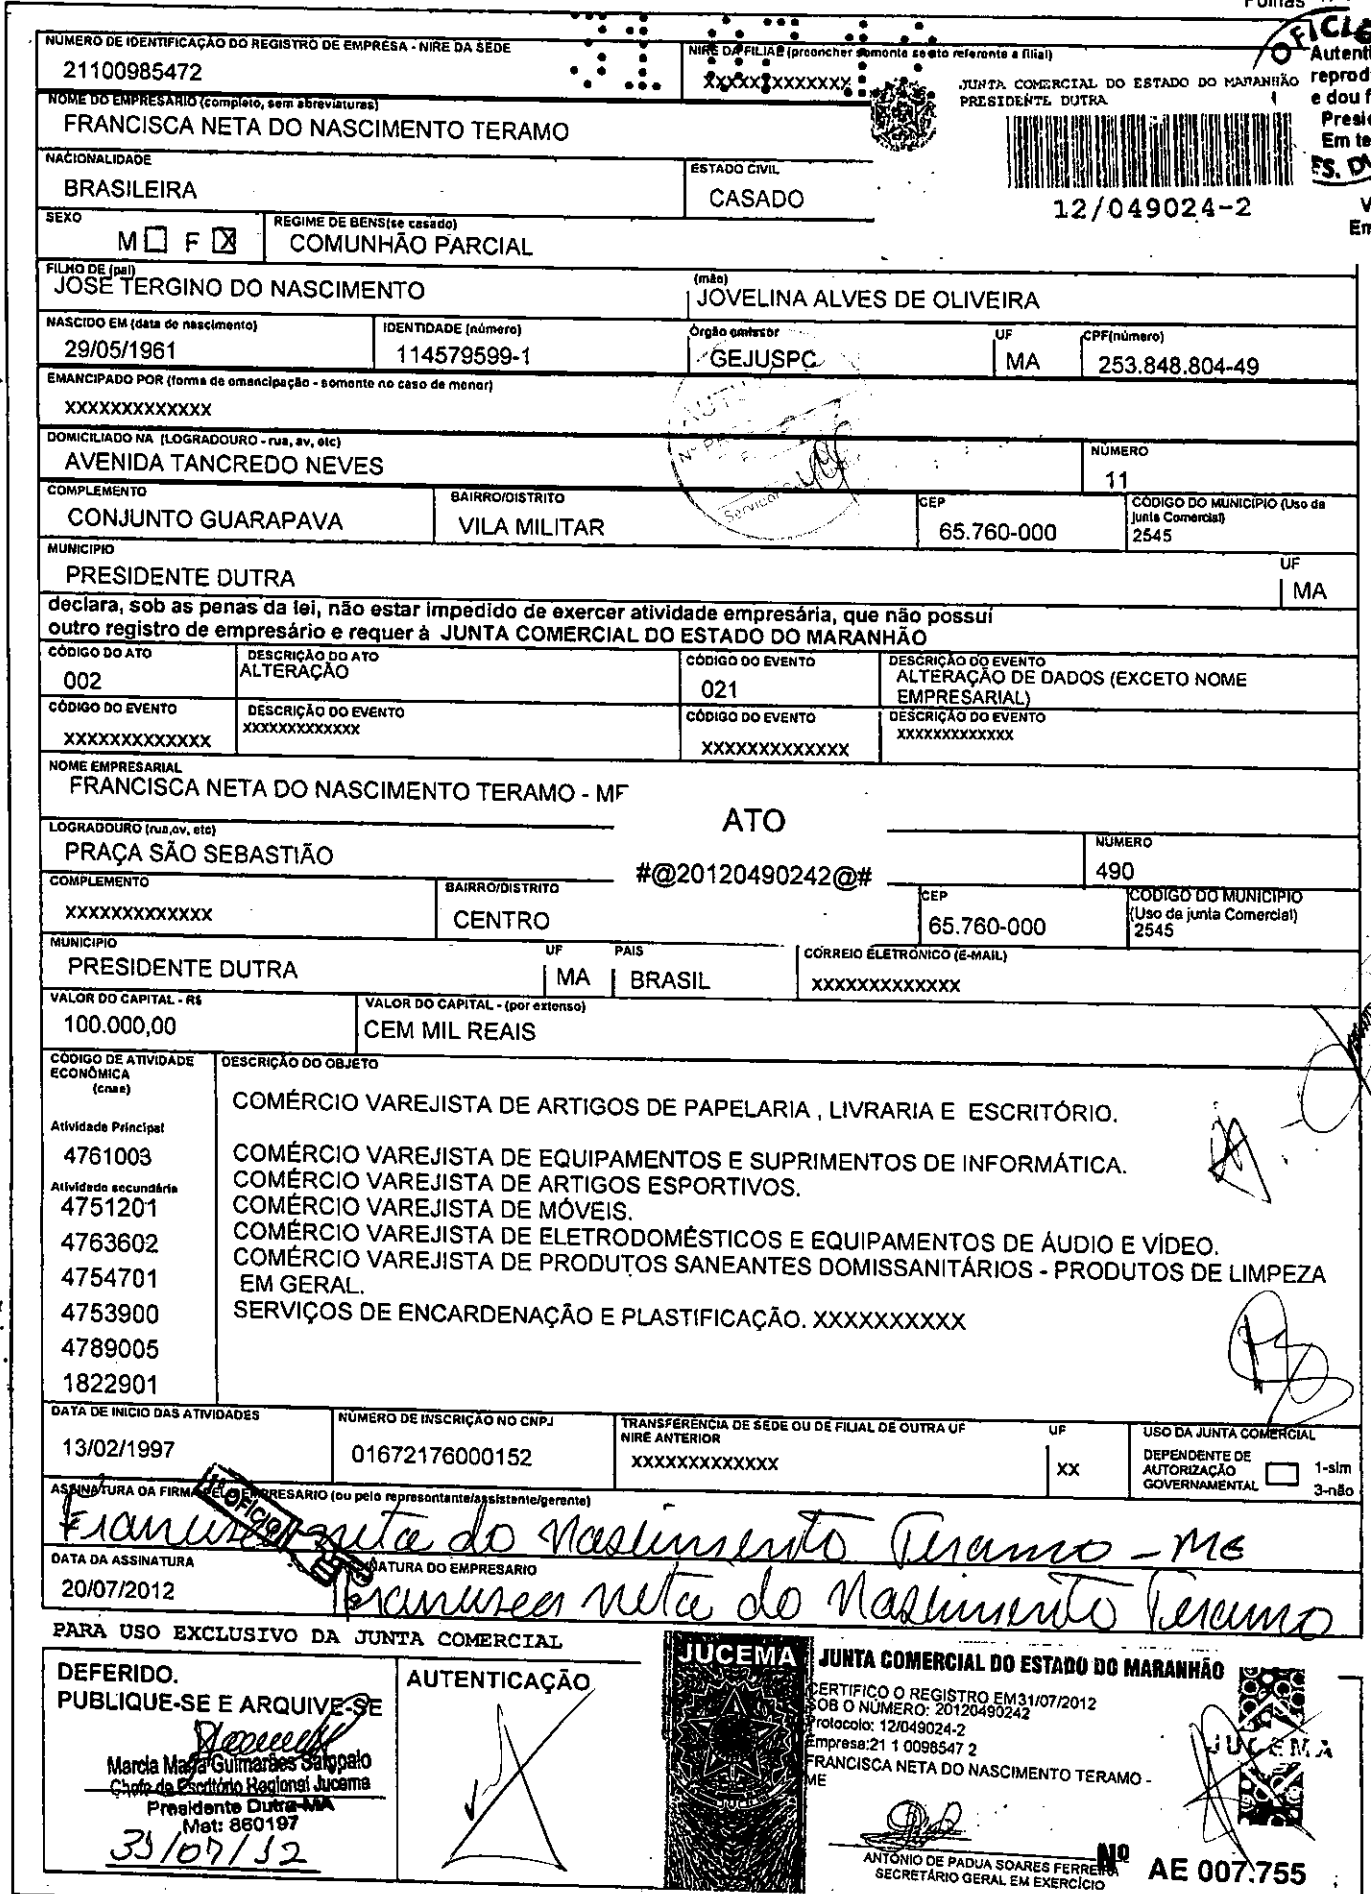 NÚMERO DE IDENTIFICAÇÃO DO REGISTRO DE EMPRESA - NIRE DA SEDE
21100985472
NIRE DA FILIAL (preencher somente se ato referente a filial)
JUNTA COMERCIAL DO ESTADO DO MARANHÃO
PRESIDENTE DUTRA
12/049024-2
NOME DO EMPRESÁRIO (completo, sem abreviaturas)
FRANCISCA NETA DO NASCIMENTO TERAMO
NACIONALIDADE
BRASILEIRA
ESTADO CIVIL
CASADO
SEXO
M F X
REGIME DE BENS(se casado)
COMUNHÃO PARCIAL
FILHO DE (pai)
JOSE TERGINO DO NASCIMENTO
(mãe)
JOVELINA ALVES DE OLIVEIRA
NASCIDO EM (data de nascimento)
29/05/1961
IDENTIDADE (número)
114579599-1
Órgão emissor
GEJUSPC
UF
MA
CPF(número)
253.848.804-49
EMANCIPADO POR (forma de emancipação - somente no caso de menor)
XXXXXXXXXXXXX
DOMICILIADO NA (LOGRADOURO - rua, av, etc)
AVENIDA TANCREDO NEVES
NÚMERO
11
COMPLEMENTO
CONJUNTO GUARAPAVA
BAIRRO/DISTRITO
VILA MILITAR
CEP
65.760-000
CÓDIGO DO MUNICIPIO (Uso da junta Comercial)
2545
MUNICIPIO
PRESIDENTE DUTRA
UF
MA
declara, sob as penas da lei, não estar impedido de exercer atividade empresária, que não possui
outro registro de empresário e requer à JUNTA COMERCIAL DO ESTADO DO MARANHÃO
CÓDIGO DO ATO
002
DESCRIÇÃO DO ATO
ALTERAÇÃO
CÓDIGO DO EVENTO
021
DESCRIÇÃO DO EVENTO
ALTERAÇÃO DE DADOS (EXCETO NOME
EMPRESARIAL)
CÓDIGO DO EVENTO
XXXXXXXXXXXXX
DESCRIÇÃO DO EVENTO
XXXXXXXXXXXXX
CÓDIGO DO EVENTO
XXXXXXXXXXXXX
DESCRIÇÃO DO EVENTO
XXXXXXXXXXXXX
NOME EMPRESARIAL
FRANCISCA NETA DO NASCIMENTO TERAMO - ME
ATO
#@20120490242@#
LOGRADOURO (rua,av, etc)
PRAÇA SÃO SEBASTIÃO
NÚMERO
490
COMPLEMENTO
XXXXXXXXXXXXX
BAIRRO/DISTRITO
CENTRO
CEP
65.760-000
CÓDIGO DO MUNICIPIO
(Uso da junta Comercial)
2545
MUNICIPIO
PRESIDENTE DUTRA
UF
MA
PAIS
BRASIL
CORREIO ELETRÔNICO (E-MAIL)
XXXXXXXXXXXXX
VALOR DO CAPITAL - R$
100.000,00
VALOR DO CAPITAL - (por extenso)
CEM MIL REAIS
CÓDIGO DE ATIVIDADE
ECONÔMICA
(cnae)
Atividade Principal
4761003
Atividade secundária
4751201
4763602
4754701
4753900
4789005
1822901
DESCRIÇÃO DO OBJETO
COMÉRCIO VAREJISTA DE ARTIGOS DE PAPELARIA , LIVRARIA E ESCRITÓRIO.
COMÉRCIO VAREJISTA DE EQUIPAMENTOS E SUPRIMENTOS DE INFORMÁTICA.
COMÉRCIO VAREJISTA DE ARTIGOS ESPORTIVOS.
COMÉRCIO VAREJISTA DE MÓVEIS.
COMÉRCIO VAREJISTA DE ELETRODOMÉSTICOS E EQUIPAMENTOS DE ÁUDIO E VÍDEO.
COMÉRCIO VAREJISTA DE PRODUTOS SANEANTES DOMISSANITÁRIOS - PRODUTOS DE LIMPEZA
EM GERAL.
SERVIÇOS DE ENCARDENAÇÃO E PLASTIFICAÇÃO. XXXXXXXXXX
DATA DE INICIO DAS ATIVIDADES
13/02/1997
NÚMERO DE INSCRIÇÃO NO CNPJ
01672176000152
TRANSFERÊNCIA DE SEDE OU DE FILIAL DE OUTRA UF
NIRE ANTERIOR
XXXXXXXXXXXXX
UF
XX
USO DA JUNTA COMERCIAL
DEPENDENTE DE
AUTORIZAÇÃO
GOVERNAMENTAL
1-sim
3-não
ASSINATURA DA FIRMA PELO EMPRESARIO (ou pelo representante/assistente/gerente)
1º OFÍCIO
Francisca neta do Nascimento Teramo - ME
DATA DA ASSINATURA
20/07/2012
NATURA DO EMPRESARIO
Francisca neta do Nascimento Teramo
PARA USO EXCLUSIVO DA JUNTA COMERCIAL
DEFERIDO.
PUBLIQUE-SE E ARQUIVE-SE
Marcia Guimarães
Chefe de Escritório Regional Jucema
Presidente Dutra-MA
Mat: 860197
31/07/12
AUTENTICAÇÃO
JUCEMA
JUNTA COMERCIAL DO ESTADO DO MARANHÃO
CERTIFICO O REGISTRO EM31/07/2012
SOB O NÚMERO: 20120490242
Protocolo: 12/049024-2
Empresa:21 1 0098547 2
FRANCISCA NETA DO NASCIMENTO TERAMO -
ME
JUCEMA
ANTÔNIO DE PADUA SOARES FERREIRA
SECRETÁRIO GERAL EM EXERCÍCIO
Nº AE 007.755